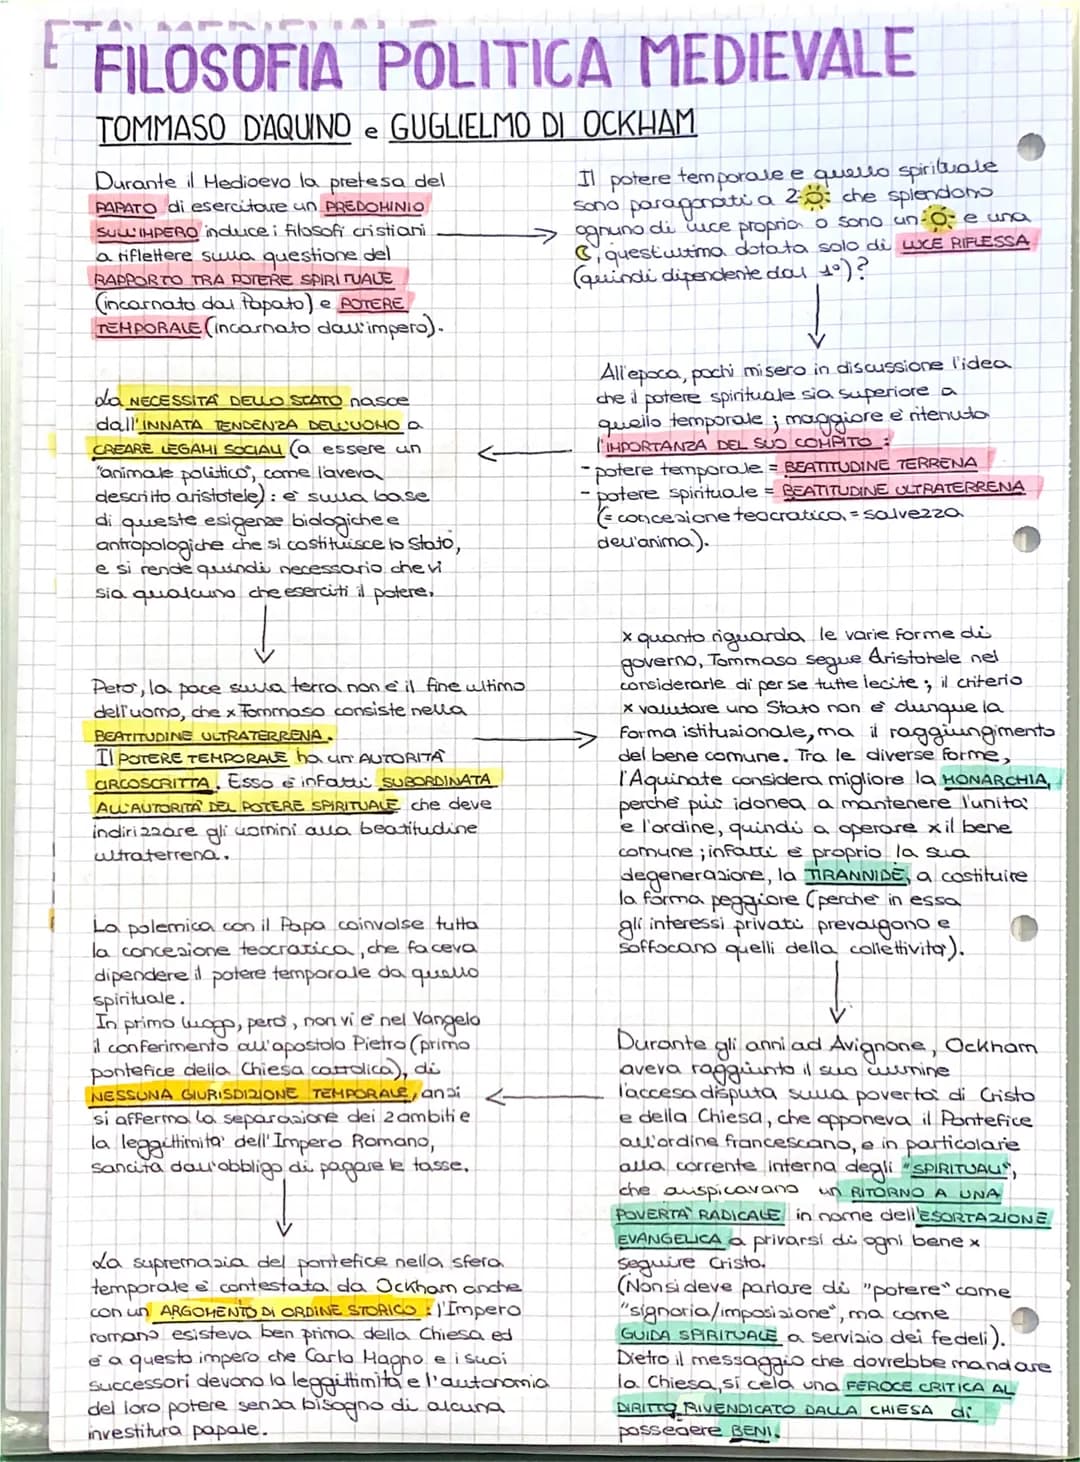 FILOSOFIA POLITICA MEDIEVALE
TOMMASO D'AQUINO e GUGLIELMO DI OCKHAM
Durante il Medioevo la pretesa del
PAPATO di esercitare un PREDOMINIO
SULL'IMPERO induce i filosofi cristiani
a riflettere sulla questione del
RAPPORTO TRA POTERE SPIRITUALE
(incarnato dal Papato) e POTERE
TEMPORALE (incarnato dall'impero).
Il potere temporale e quello spirituale
sono paragonati a 2 che splendono
ognuno di luce propria o sono un e una
, quest'ultima dotata solo di LUCE RIFLESSA
(quindi dipendente dal 1°)?
All'epoca, pochi misero in discussione l'idea
che il potere spirituale sia superiore a
quello temporale; maggiore è ritenuta
l'IMPORTANZA DEL SUO COMPITO:
- potere temporale = BEATITUDINE TERRENA
- potere spirituale = BEATITUDINE ULTRATERRENA
(= concezione teocratica, = salvezza
dell'anima).
La NECESSITÀ DELLO STATO nasce
dall'INNATA TENDENZA DELL'UOMO a
CREARE LEGAMI SOCIALI (a essere un
"animale politico", come l'aveva
descritto aristotele): è sulla base
di queste esigenze biologiche e
antropologiche che si costituisce lo Stato,
e si rende quindi necessario che vi
sia qualcuno che eserciti il potere.
Però, la pace sulla terra non è il fine ultimo
dell'uomo, che x Tommaso consiste nella
BEATITUDINE ULTRATERRENA.
Il POTERE TEMPORALE ha un'AUTORITÀ
CIRCOSCRITTA. Esso è infatti SUBORDINATA
ALL'AUTORITÀ DEL POTERE SPIRITUALE che deve
indirizzare gli uomini alla beatitudine
ultraterrena.
x quanto riguarda le varie forme di
governo, Tommaso segue Aristotele nel
considerarle di per se tutte lecite; il criterio
x valutare uno Stato non è dunque la
forma istituzionale, ma il raggiungimento
del bene comune. Tra le diverse forme,
l'Aquinate considera migliore la MONARCHIA,
perché più idonea a mantenere l'unità
e l'ordine, quindi a operare x il bene
comune; infatti è proprio la sua
degenerazione, la TIRANNIDE, a costituire
la forma peggiore (perché in essa
gli interessi privati prevalgono e
soffocano quelli della collettività).
Durante gli anni ad Avignone, Ockham
aveva raggiunto il suo culmine
l'accesa disputa sulla povertà di Cristo
e della Chiesa, che opponeva il Pontefice
all'ordine francescano, e in particolare
alla corrente interna degli "SPIRITUALI",
che auspicavano un RITORNO A UNA
POVERTÀ RADICALE in nome dell'ESORTAZIONE
EVANGELICA a privarsi di ogni bene x
seguire Cristo.
(Non si deve parlare di "potere" come
"signoria/imposizione", ma come
GUIDA SPIRITUALE a servizio dei fedeli).
Dietro il messaggio che dovrebbe mandare
la Chiesa, si cela una FEROCE CRITICA AL
DIRITTO RIVENDICATO DALLA CHIESA di
possedere BENI.
La polemica con il Papa coinvolse tutta
la concezione teocratica, che faceva
dipendere il potere temporale da quello
spirituale.
In primo luogo, però, non vi è nel Vangelo
il conferimento all'apostolo Pietro (primo
pontefice della Chiesa cattolica), di
NESSUNA GIURISDIZIONE TEMPORALE, anzi
si afferma la separazione dei 2 ambiti e
la leggittimità dell'Impero Romano,
sancita dall'obbligo di pagare le tasse.
La supremazia del pontefice nella sfera
temporale è contestata da Ockham anche
con un ARGOMENTO DI ORDINE STORICO: l'Impero
romano esisteva ben prima della Chiesa ed
è a questo impero che Carlo Magno e i suoi
successori devono la leggittimità e l'autonomia
del loro potere senza bisogno di alcuna
investitura papale.